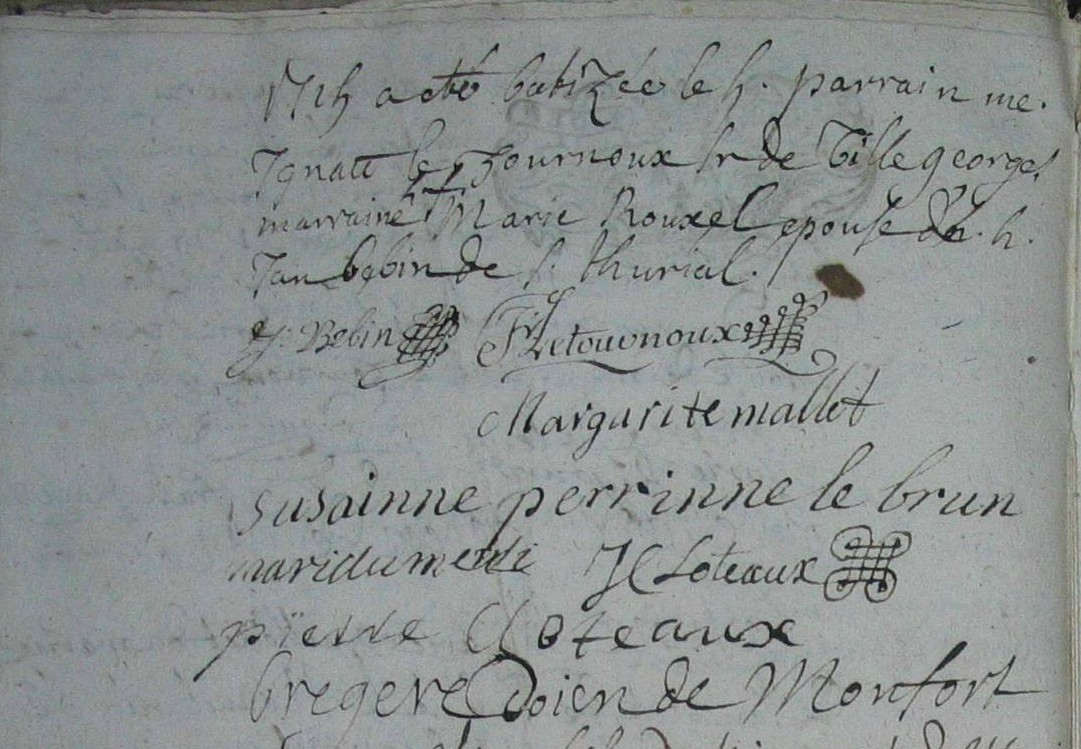 a eté batizée le parrain me.
Ignace le Tournoux sr de Ville george,
marraine Marie Rouxel epouse de h.
Jan bebin de s. thurial.
J. Bebin Letournoux
Margarite mallet
susainne perrinne le brun
maridumerdi J Cloteaux
pierre Cloteaux
bregere Doien de Monfort